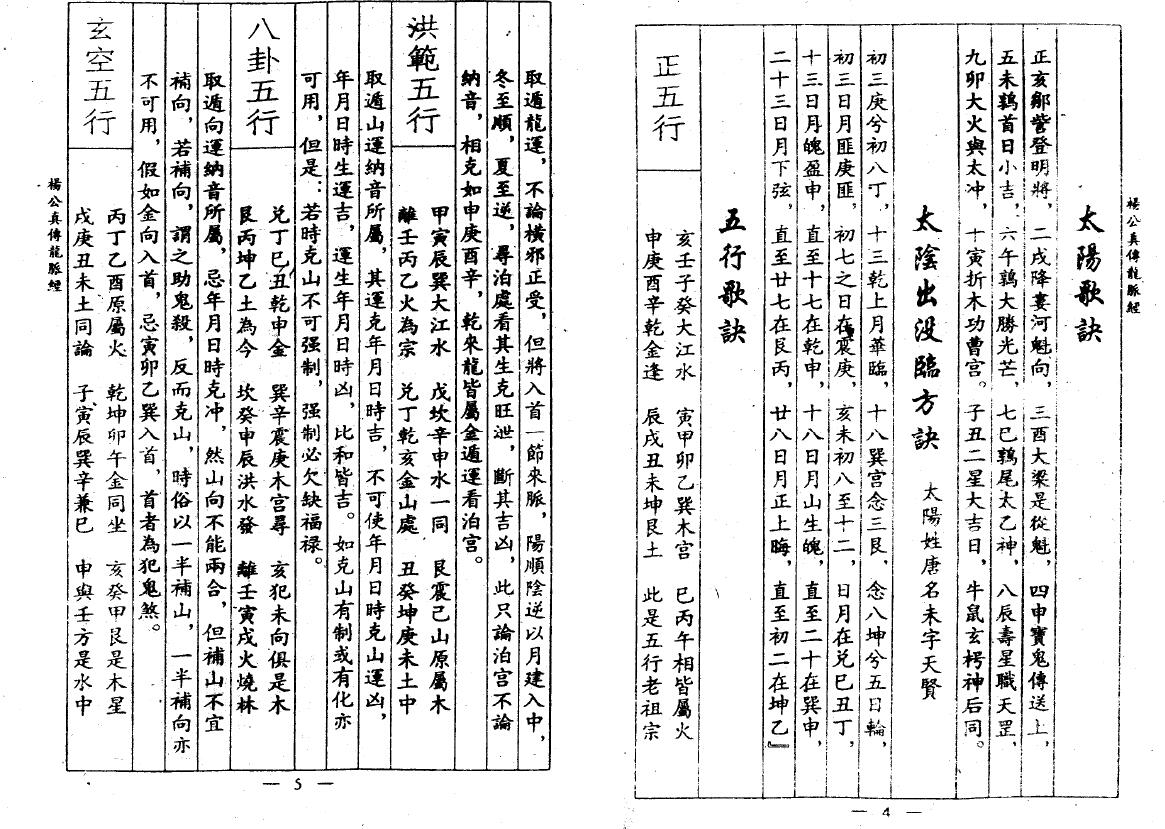 楊公真傳龍脈經
太陽歌訣
正亥鄒訾登明將，二戌降婁河魁向，三酉大梁是從魁，四申寶鬼傳送上，
五未鶉首日小吉，六午鶉大勝光芒，七巳鶉尾太乙神，八辰壽星職天罡，
九卯大火與太冲，十寅折木功曹宮。子丑二星大吉日，牛鼠玄枵神后同。
太陰出没臨方訣 太陽姓唐名未字天賢
初三庚兮初八丁，十三乾上月華臨，十八巽宮念三艮，念八坤兮五日輪，
初三日月匪庚匪，初七之日在震庚，亥未初八至十二，日月在兑巳丑丁，
十三日月魄盈申，直至十七在乾申，十八日月山生魄，直至二十在巽申，
二十三日月下弦，直至廿七在艮丙，廿八日月正上晦，直至初二在坤乙』
五行歌訣
正五行
亥壬子癸大江水 寅甲卯乙巽木宫 巳丙午相皆屬火
申庚酉辛乾金逢 辰戌丑未坤艮土 此是五行老祖宗
— 4 —
取遁龍運，不論橫邪正受，但將入首一節來脈，陽順陰逆以月建入中，
冬至順，夏至逆，尋泊處看其生克旺泄，斷其吉凶，此只論泊宫不論
納音，相克如申庚酉辛，乾來龍皆屬金遁運看泊宫。
洪範五行
甲寅辰巽大江水 戊坎辛申水一同 艮震己山原屬木
離壬丙乙火為宗 兑丁乾亥金山處 丑癸坤庚未土中
取遁山運納音所屬，其運克年月日時吉，不可使年月日時克山運凶，
年月日時生運吉，運生年月日時凶，比和皆吉。如克山有制或有化亦
可用，但是：若時克山不可强制，强制必欠缺福禄。
八卦五行
兑丁巳丑乾申金 巽辛震庚木宫尋 亥犯未向俱是木
艮丙坤乙土為今 坎癸申辰洪水發 離壬寅戌火燒林
取遁向運納音所屬，忌年月日時克冲，然山向不能兩合，但補山不宜
補向，若補向，謂之助鬼殺，反而克山，時俗以一半補山，一半補向亦
不可用，假如金向入首，忌寅卯乙巽入首，首者為犯鬼煞。
玄空五行
丙丁乙酉原屬火 乾坤卯午金同坐 亥癸甲艮是木星
戌庚丑未土同論 子寅辰巽辛兼巳 申與壬方是水中
楊公真傳龍脈經
— 5 —